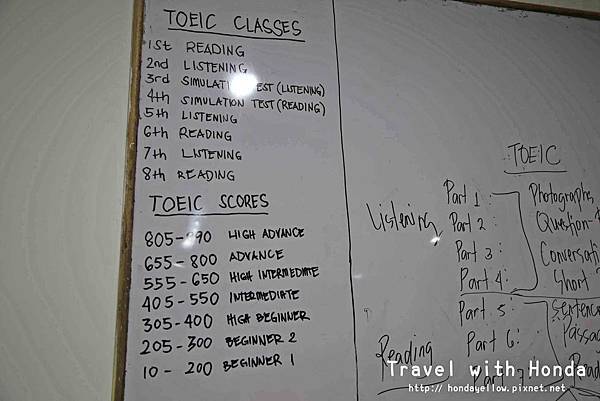 TOEIC CLASSES
1st READING
2nd LISTENING
3rd SIMULATION TEST (LISTENING)
4th SIMULATION TEST (READING)
5th LISTENING
6th READING
7th LISTENING
8th READING
TOEIC SCORES
805-990 HIGH ADVANCE
655-800 ADVANCE
555-650 HIGH INTERMEDIATE
405-550 INTERMEDIATE
305-400 HIGH BEGINNER
205-300 BEGINNER 2
10-200 BEGINNER 1
TOEIC
Listening
Part 1: Photographs
Part 2: Question-
Part 3: Conversati
Part 4: Short
Reading
Part 5: Sentenc
Part 6: Passa
Travel with Honda
http://hondayellow.pixnet.net